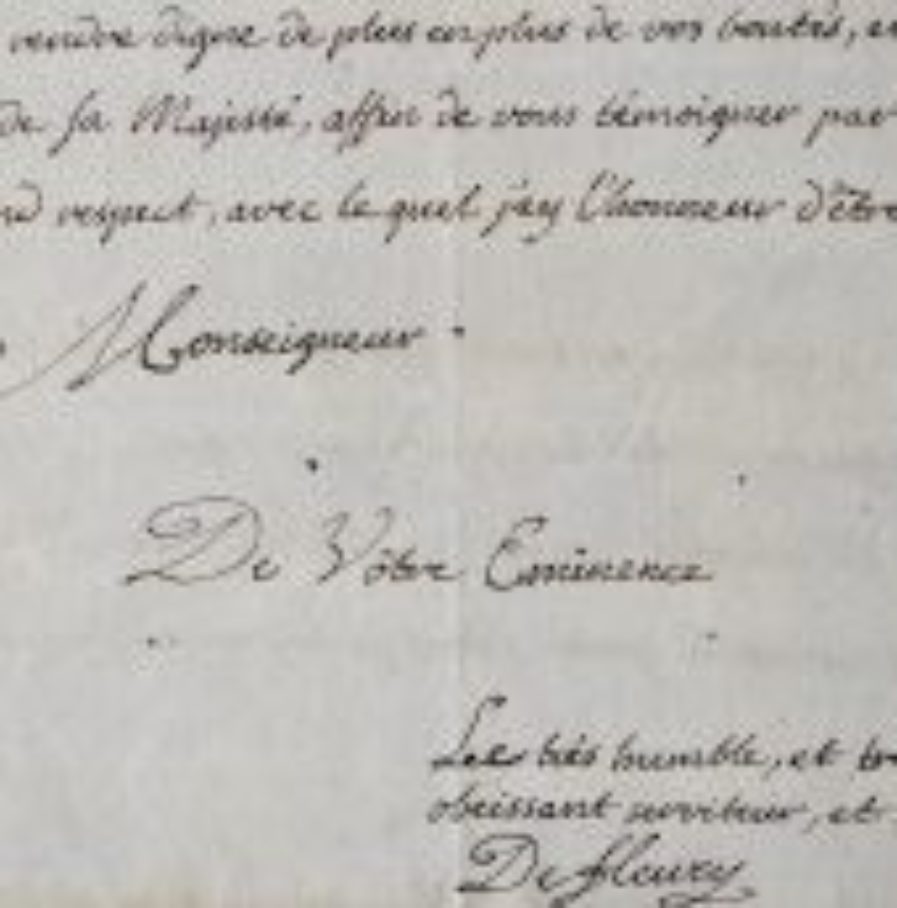 rendre digne de plus en plus de vos bontés, et
de sa Majesté, affin de vous témoigner par
respect, avec le quel j'ay l'honneur d'être
Monseigneur
De Vôtre Eminence
Le très humble, et
obeissant serviteur, et
De fleury